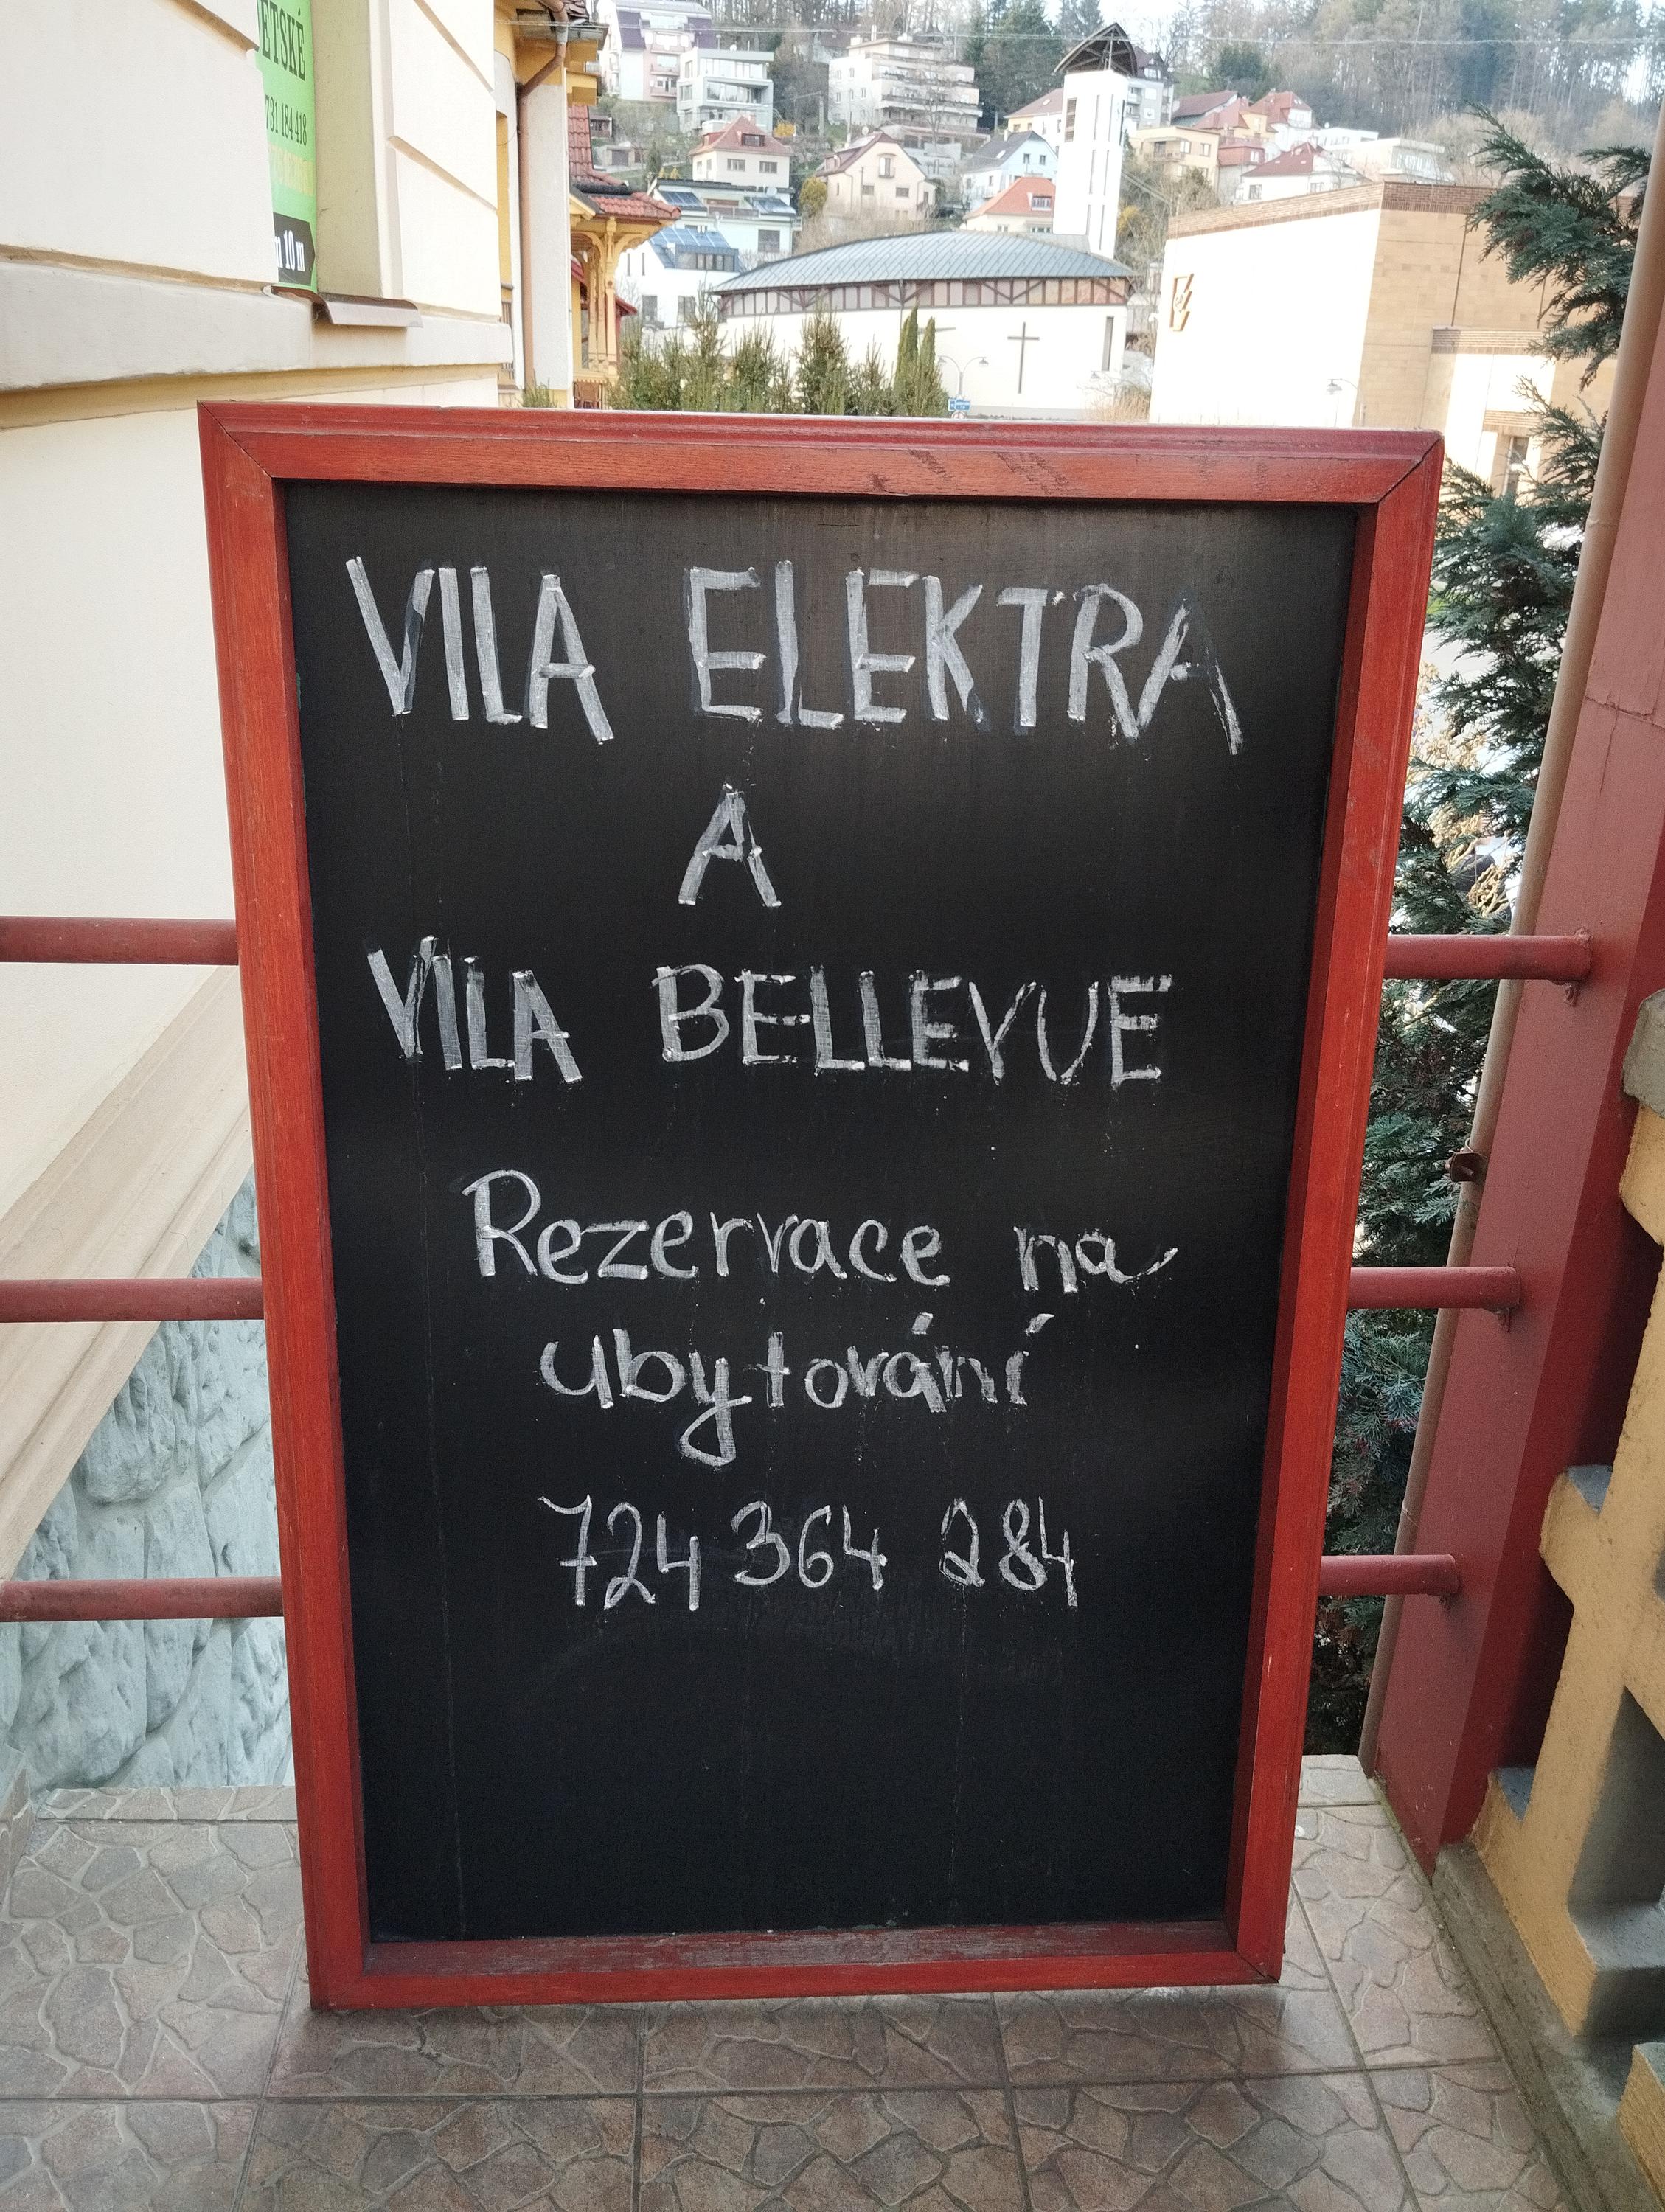 ETSKÉ
731 184 418
10 m
VILA ELEKTRA
A
VILA BELLEVUE
Rezervace na
ubytování
724 364 284